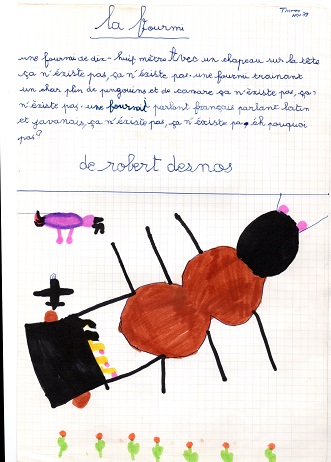 la Fourmi
une fourmi de dix-huit mètre Avec un chapeau sur la tête
ça n'éxiste pas, ça n'éxiste pas. une fourmi trainant
un char plin de pingouins et de canare ça n'éxiste pas, ça
n'éxiste pas. une fourmit parlant français parlant latin
et javanais, ça n'éxiste pas, ça n'éxiste pa, éh pouquoi
pas?
de robert desnos